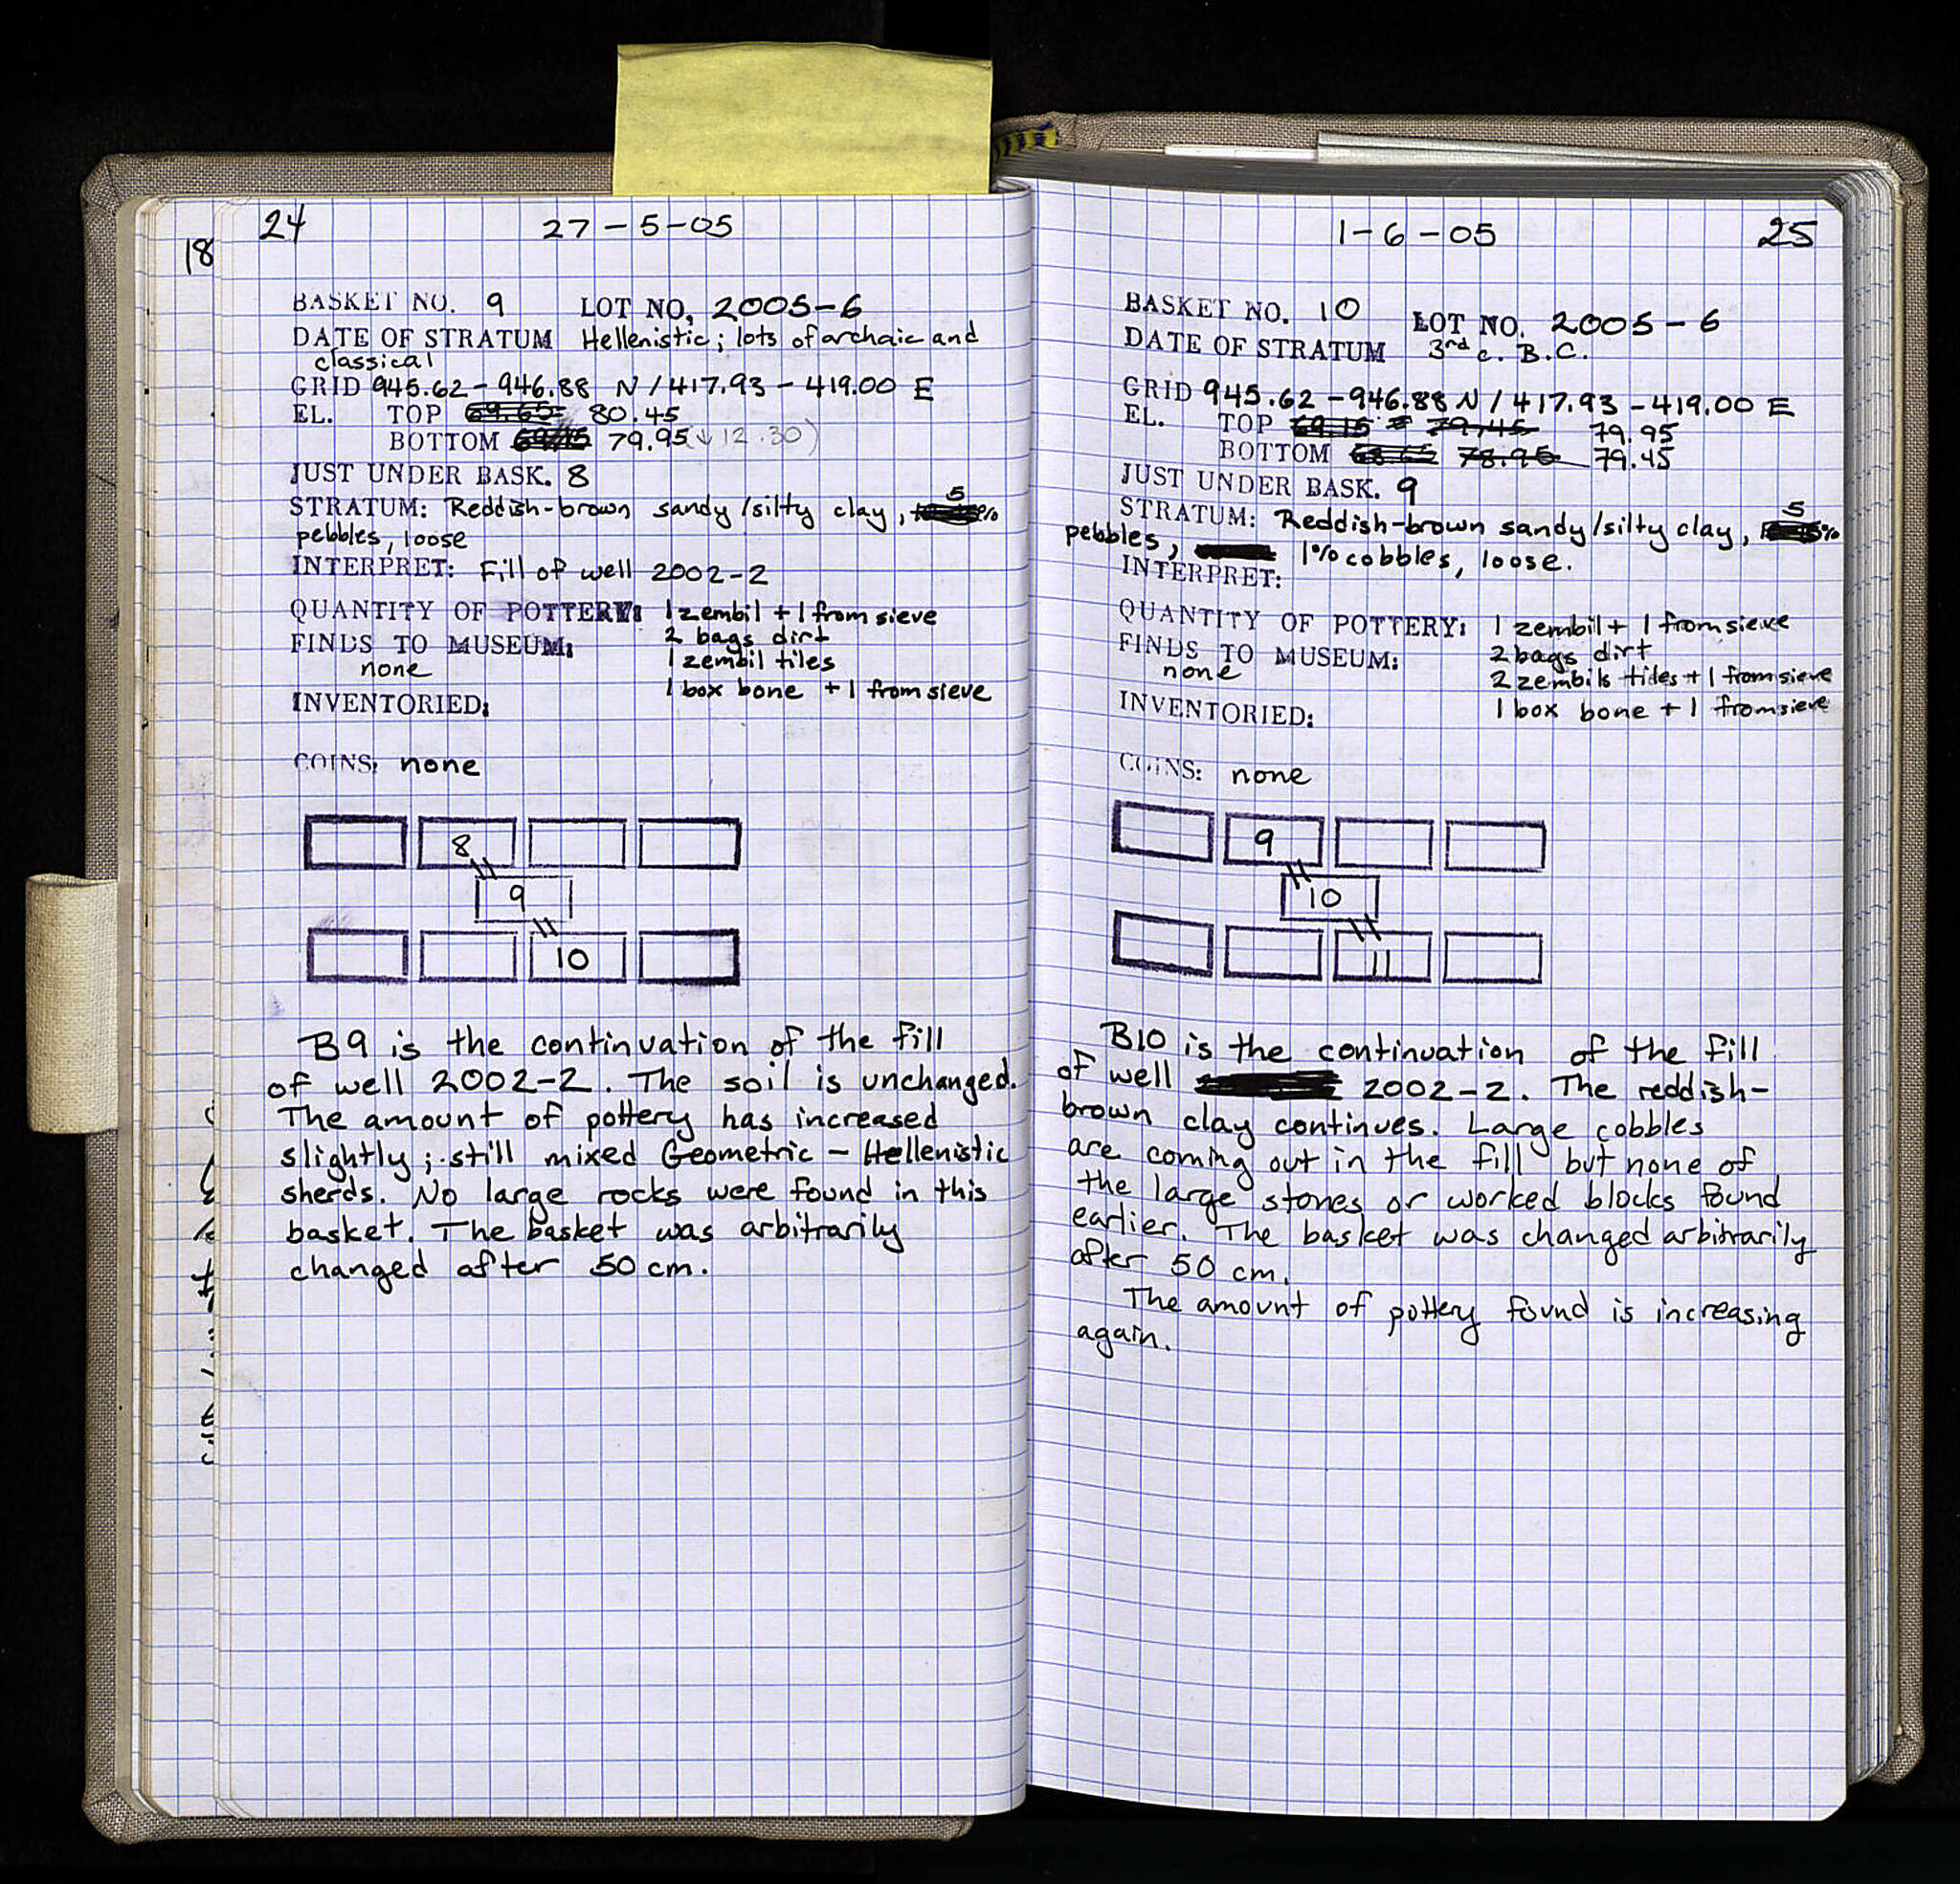 24
27-5-05
18
BASKET NO. 9 LOT NO, 2005-6
DATE OF STRATUM Hellenistic; lots of archaic and
classical
GRID 945.62-946.88 N/417.93-419.00 E
EL. TOP 80.45
BOTTOM 79.95 (↓12.30)
JUST UNDER BASK. 8
STRATUM: Reddish-brown sandy/silty clay, 5%
pebbles, loose
INTERPRET: Fill of well 2002-2
QUANTITY OF POTTERY: 1 zembil + 1 from sieve
2 bags dirt
FINDS TO MUSEUM:
none
1 zembil tiles
1 box bone + 1 from sieve
INVENTORIED:
COINS: none
8
9
10
B9 is the continuation of the fill
of well 2002-2. The soil is unchanged.
The amount of pottery has increased
slightly; still mixed Geometric - Hellenistic
sherds. No large rocks were found in this
basket. The basket was arbitrarily
changed after 50 cm.
1-6-05
25
BASKET NO. 10 LOT NO. 2005-6
DATE OF STRATUM 3rd c. B.C.
GRID 945.62-946.88 N/417.93-419.00 E
EL. TOP 69.15 79.45 79.95
BOTTOM 78.95 79.45
JUST UNDER BASK. 9
STRATUM: Reddish-brown sandy/silty clay, 5%
pebbles, 1% cobbles, loose.
INTERPRET:
QUANTITY OF POTTERY: 1 zembil + 1 from sieve
2 bags dirt
FINDS TO MUSEUM:
none
2 zembils tides + 1 from sieve
1 box bone + 1 from sieve
INVENTORIED:
COINS: none
9
10
11
B10 is the continuation of the fill
of well 2002-2. The reddish-
brown clay continues. Large cobbles
are coming out in the fill but none of
the large stones or worked blocks found
earlier. The basket was changed arbitrarily
after 50 cm.
The amount of pottery found is increasing
again.